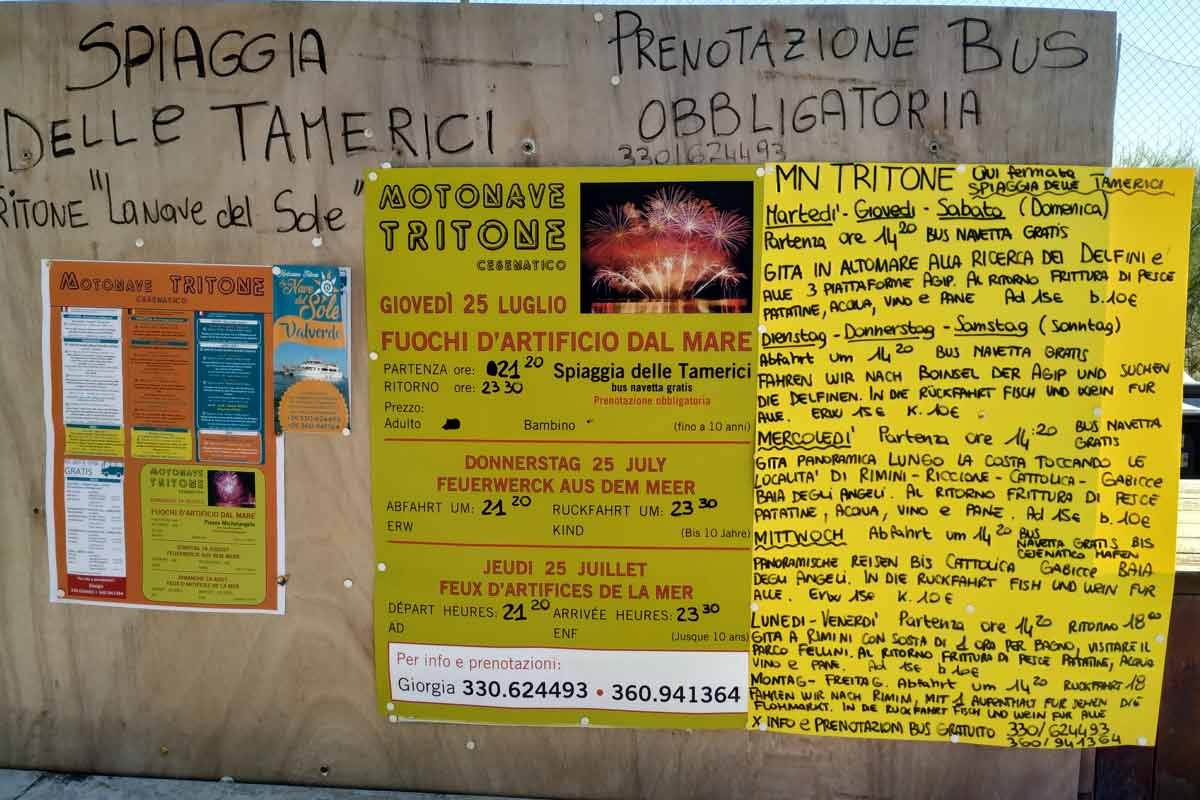 SPIAGGIA
DELLE TAMERICI
RITONE "La nave del Sole"
PRENOTAZIONE BUS
OBBLIGATORIA
330/624493
MOTONAVE TRITONE
CESENATICO
Nave
del Sole
Valverde
GRATIS
MOTONAVE
TRITONE
FUOCHI D'ARTIFICIO DAL MARE
Piazza Michelangelo
FEUERWERCK AUS DEM MEER
FEUX D'ARTIFICES DE LA MER
MOTONAVE
TRITONE
CESENATICO
GIOVEDÌ 25 LUGLIO
FUOCHI D'ARTIFICIO DAL MARE
PARTENZA ore: 21 20 Spiaggia delle Tamerici
RITORNO ore: 23 30 bus navetta gratis
Prenotazione obbligatoria
Prezzo:
Adulto Bambino (fino a 10 anni)
DONNERSTAG 25 JULY
FEUERWERCK AUS DEM MEER
ABFAHRT UM: 21 20 RUCKFAHRT UM: 23 30
ERW KIND (Bis 10 Jahre)
JEUDI 25 JUILLET
FEUX D'ARTIFICES DE LA MER
DÉPART HEURES: 21 20 ARRIVÉE HEURES: 23 30
AD ENF (Jusque 10 ans)
Per info e prenotazioni:
Giorgia 330.624493 • 360.941364
MN TRITONE QUI fermata
SPIAGGIA DELLE TAMERICI
Martedi' - Giovedi - Sabato (Domenica)
Partenza ore 14 20 BUS NAVETTA GRATIS
GITA IN ALTOMARE ALLA RICERCA DEI DELFINI e
ALLE 3 PIATTAFORME AGIP. AL RITORNO FRITTURA DI PESCE
PATATINE, ACQUA, VINO e PANE Ad 15€ b. 10€
Dienstag - Donnerstag - Samstag (Sonntag)
Abfahrt um 14 20 BUS NAVETTA GRATIS
FAHREN WIR NACH BOINSEL DER AGIP UND SUCHEN
DIE DELFINEN. IN DIE RÜCKFAHRT FISCH UND WEIN FUR
ALLE. ERW 15€ K. 10€
MERCOLEDI' Partenza ore 14:20 BUS NAVETTA
GRATIS
GITA PANORAMICA LUNGO LA COSTA TOCCANDO LE
LOCALITA' DI RIMINI - RICCIONE - CATTOLICA - GABICCE
BAIA DEGLI ANGELI. AL RITORNO FRITTURA DI PESCE
PATATINE, ACQUA, VINO e PANE. Ad 15€ b. 10€
MITTWOCH Abfahrt um 14 20 BUS
NAVETTA GRATIS BIS
CESENATICO HAFEN
PANORAMISCHE REISEN BIS CATTOLICA GABICCE BAIA
DEGLI ANGELI. IN DIE RUCKFAHRT FISH UND WEIN FUR
ALLE. Erw 15€ K. 10€
LUNEDI - VENERDI' Partenza ore 14 20 RITORNO 18 00
GITA A RIMINI CON SOSTA DI 1 ORA PER BAGNO, VISITARE IL
PARCO FELLINI. AL RITORNO FRITTURA DI PESCE PATATINE, ACQUA
VINO e PANE. Ad 15€ b 10€
MONTAG - FREITAG. Abfahrt um 14 20 RUCKFAHRT 18
FAHREN WIR NACH RIMINI, MIT 1 AUFENTHALT FUR SEHEN DIE
FLOHMARKT. IN DIE RUCKFAHRT FISCH UND WEIN FUR ALLE
X INFO e PRENOTAZIONI BUS GRATUITO 330/624493
360/941364